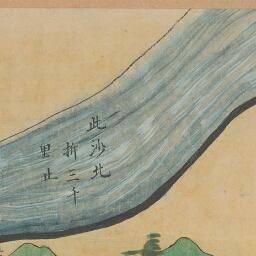 此沙北
折三千
里止